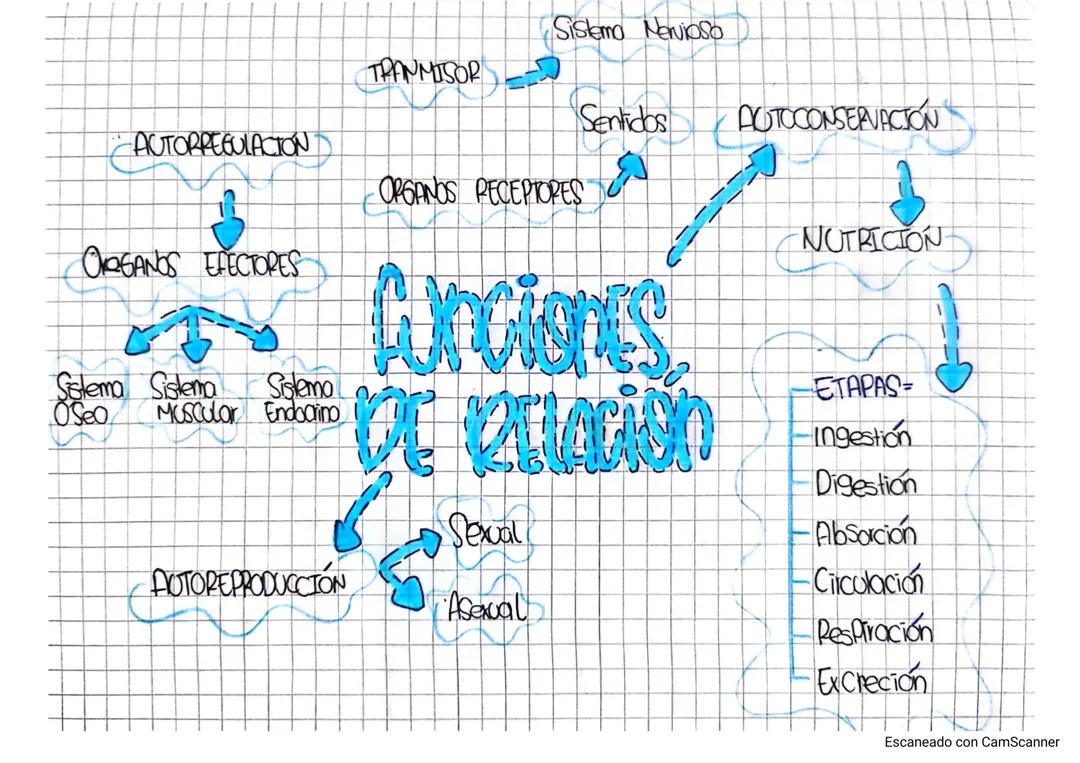 Sistema Nervioso
TRANMISOR
Sentidos
AUTOCONSERVACIÓN
AUTORREGULACIÓN
ORGANOS RECEPTORES
NUTRICIÓN
ORGANOS EFECTORES
FUNCIONES
DE RELACIÓN
Sistema
Óseo
Sistema
Muscular
Sistema
Endocrino
ETAPAS=
Ingestión
Digestión
Absorción
Circulación
Respiración
Excreción
Sexual
AUTOREPRODUCCIÓN
Asexual
Escaneado con CamScanner